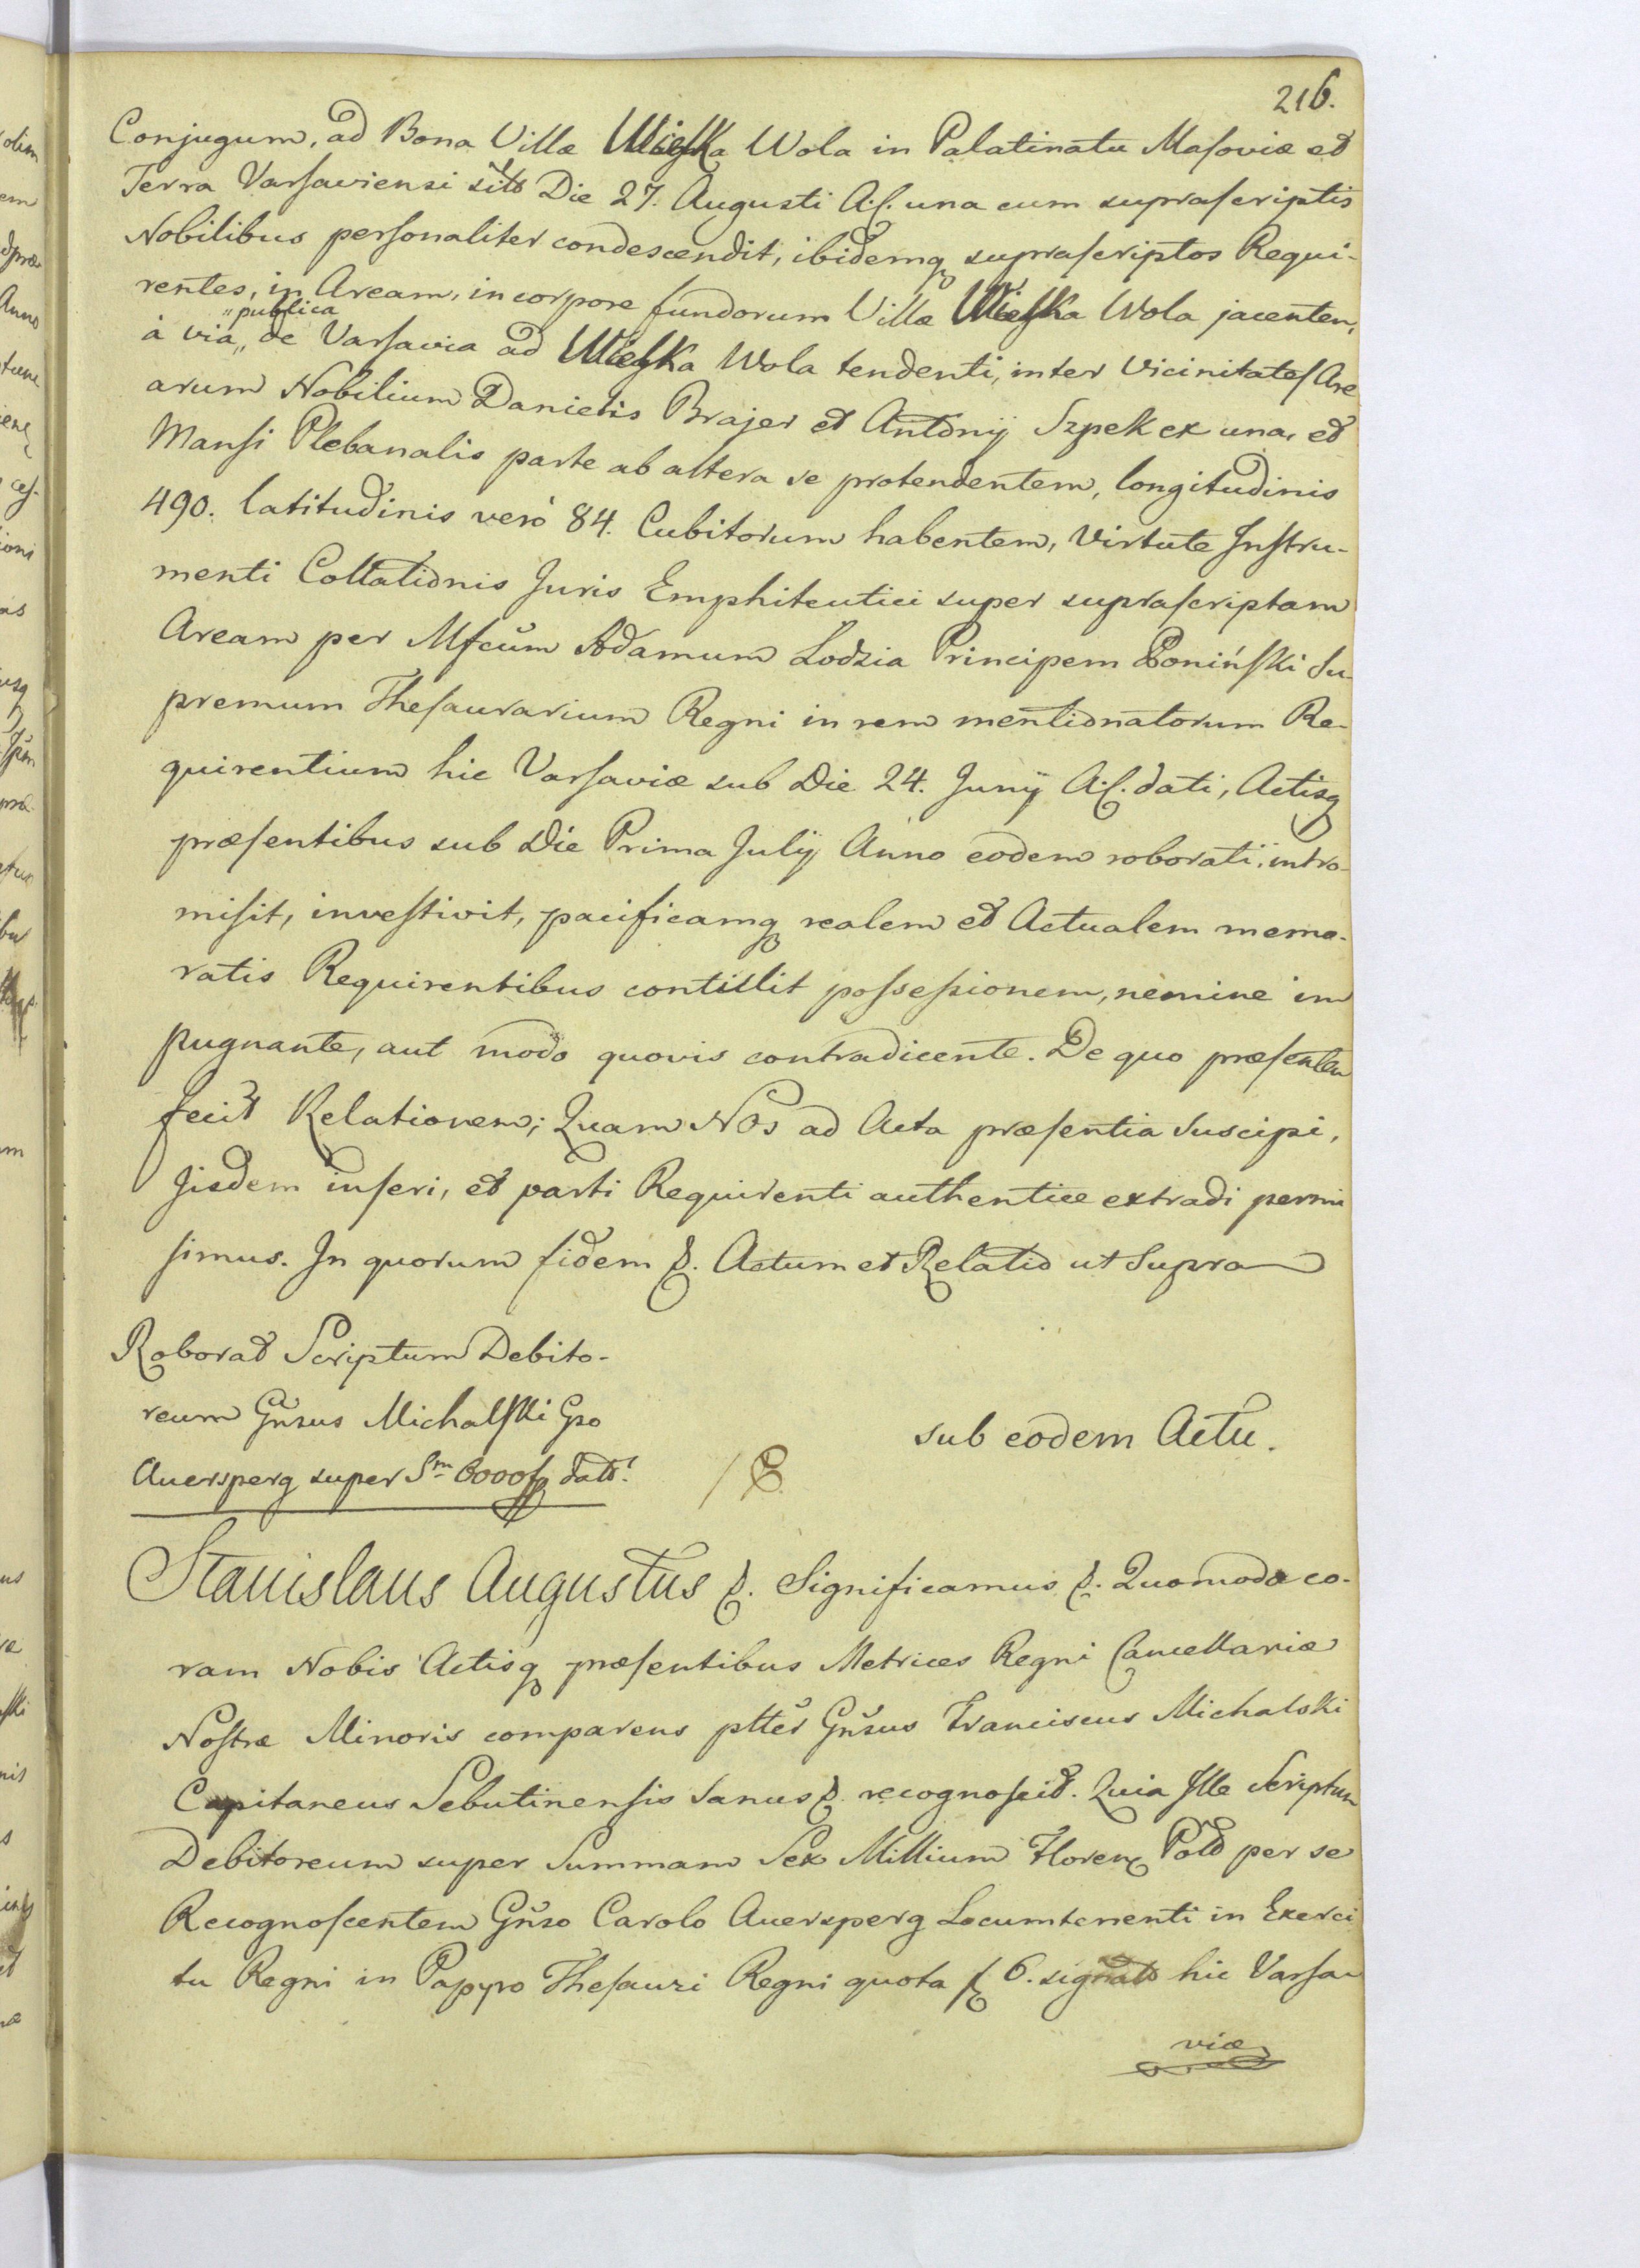 216.
Conjugum, ad Bona Villæ Wielka Wola in Palatinatu Masoviæ et
Terra Varsaviensi sito Die 27. Augusti A. C. una cum suprascriptis
Nobilibus personaliter condescendit, ibidemq suprascriptos Requi-
rentes, in Aream, in corpore fundorum Villæ Wielka Wola jacenten,
publica
à via,, de Varsavia ad Wielka Wola tendenti, inter Vicinitates Are
arum Nobilium Danielis Brajer et Antonij Szpek ex una, et
Mansi Plebanalis parte ab altera se protendentem, longitudinis
490. latitudinis verò 84. Cubitorum habentem, Virtute Instru-
menti Collationis Juris Emphiteutici super suprascriptam
Aream per Mfcum Adamum Lodzia Principem Poniński Su-
premum Thesaurarium Regni in rem mentionatorum Re-
quirentium hic Varsaviæ sub Die 24. Junij A. C. dati, Actisq
præsentibus sub Die Prima Julij Anno eodem roborati, intro-
misit, investivit, pacificamq realem et Actualem memo-
ratis Requirentibus contulit possessionem, nemine im
pugnante, aut modo quovis contradicente. De quo præsentem
fecit Relationem; Quam Nos ad Acta præsentia Suscipi,
Iisdem inseri, et parti Requirenti authentice extradi permi
simus. In quorum fidem &. Actum et Relatio ut Supra
Roborat Scriptum Debito-
reum Gnsus Michalski Gso
Auersperg super Sm 6000 f dato.
sub eodem Actu.
Stanislaus Augustus &. Significamus &. Quomodo co-
ram Nobis Actisq præsentibus Metrices Regni Cancellariæ
Nostræ Minoris comparens ptter Gnsus Franciscus Michalski
Capitaneus Sebutinensis Sanus &. recognoscit. Quia Ille Scriptum
Debitoreum super Summam Sex Millium Floren Pold per se
Recognoscentem Gnso Carolo Auersperg Locumtenenti in Exerci
tu Regni in Papyro Thesauri Regni quota f 6. signato hic Varsa-
viæ